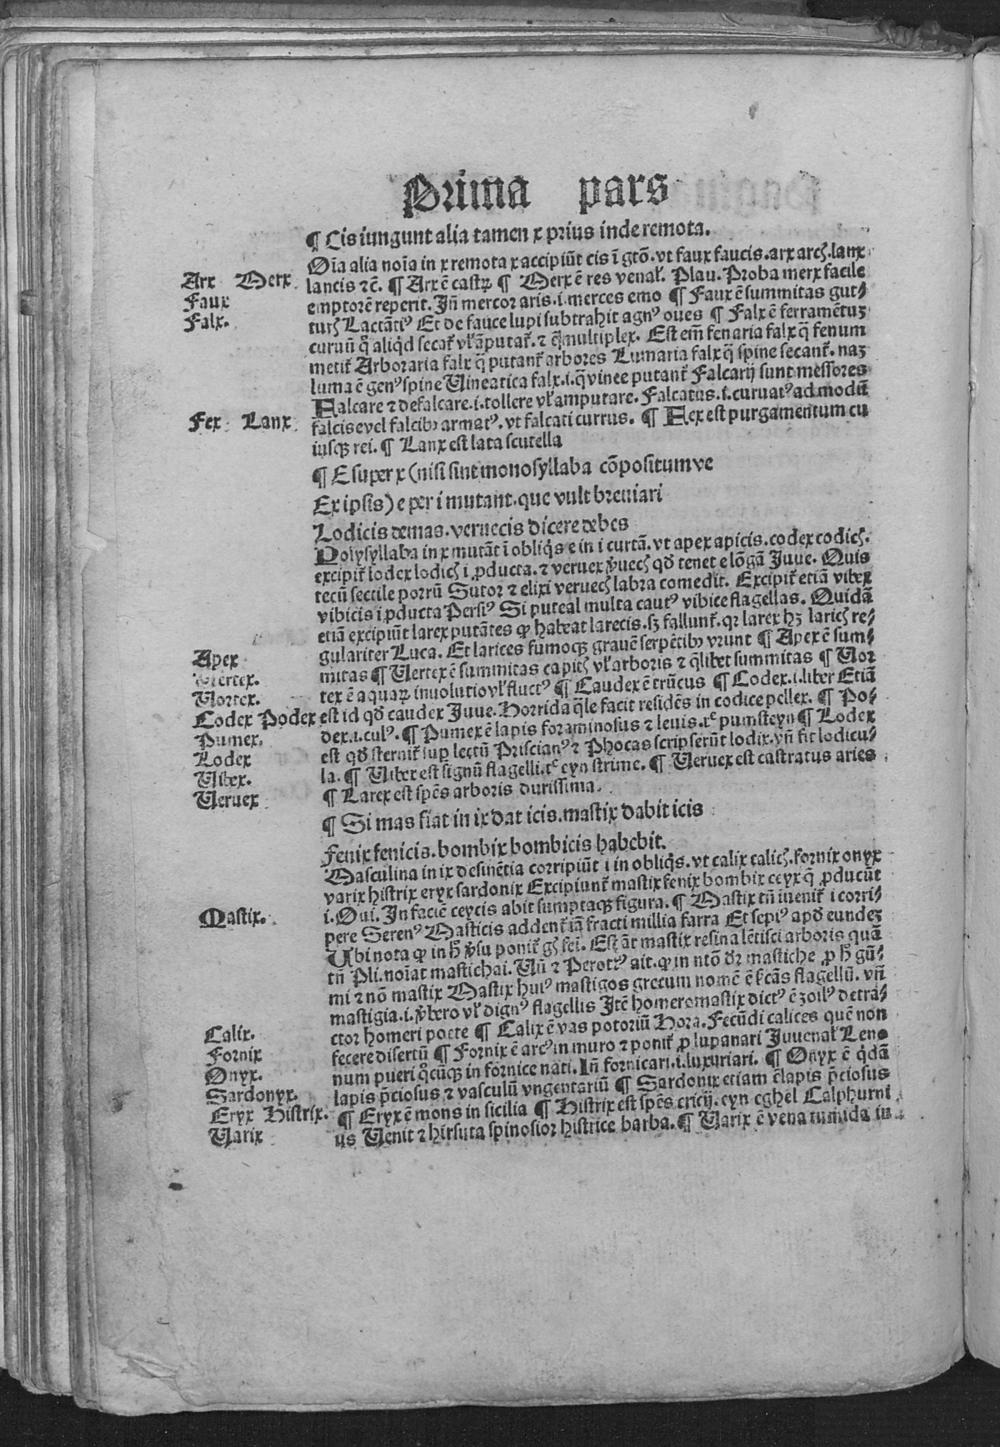 Prima pars
¶ Cis iungunt alia tamen x prius inde remota.
Oīa alia noīa in x remota x accipiūt cis ī gtō. vt faux faucis. arx arcꝭ. lanx
Arx Merx lancis ⁊c̄. ¶ Arx ē castrꝝ ¶ Merx ē res venal̕. Plau. Proba merx facile
Faux emptorē reperit. Jn̄ mercor aris .i. merces emo ¶ Faux ē summitas gut⸗
Falx. turꝭ Lactātiꝰ Et de fauce lupi subtrahit agnꝰ oues ¶ Falx ē ferramētuꝫ
curuū q̄ aliqd secat̕ vl̕ āputat̕. ⁊ q̄ multiplex. Est em̄ fenaria falx q̄ fenum
metit̕ Arboraria falx q̄ putant̕ arbores Lumaria falx q̄ spine secant̕. naꝫ
luma ē genꝰ spine Uineatica falx .i. q̄ vinee putant̕ Falcarij sunt messores
Falcare ⁊ defalcare .i. tollere vl̕ amputare. Falcatus .i. curuatꝰ ad modū
Fex Lanx falcis evel falcibꝰ armatꝰ. vt falcati currus. ¶ Fex est purgamentum cu
iusqꝫ rei. ¶ Lanx est lata scutella
¶ E super x (nisi sint monosyllaba cōpositumve
Ex ipsis) e per i mutant. que vult breuiari
Lodicis demas. veruecis dicere debes
Polysyllaba in x mutāt ī obliqs e in i curtā. vt apex apicis. codex codicꝭ.
excipit̕ lodex lodicꝭ i ꝓducta. ⁊ veruex v̄uecꝭ qd tenet e lōgā Juue. Quis
tecū sectile porrū Sutor ⁊ elixi veruecꝭ labra comedit. Excipit̕ etiā vibex
vibicis i ꝓducta Persiꝰ Si puteal multa cautꝰ vibice flagellas. Quidā
etiā excipiūt larex putātes ꝙ habeat larecis. sꝫ fallunt̕. qꝛ larex hꝫ laricꝭ re⸗
gulariter Luca. Et larices fumoqꝫ grauē serpētibꝰ vrunt ¶ Apex ē sum⸗
Apex mitas ¶ Uertex ē summitas capitꝭ vl̕ arboris ⁊ qlibet summitas ¶ Uor
Uertex.
Uortex. tex ē aquarꝝ inuolutio vl̕ fluctꝰ ¶ Caudex ē trūcus ¶ Codex .i. liber Etiā
Codex Podex est id qd caudex Juue. Horrida qle facit residēs in codice pellex. ¶ Po⸗
Pumex. dex .i. culꝰ. ¶ Pumex ē lapis foraminosus ⁊ leuis. te pumsteyn ¶ Lodex
Lodex est qd sternit̕ suꝑ lectū Priscianꝰ ⁊ Phocas scripserūt lodix. vn̄ fit lodicu⸗
Uibex. la. ¶ Uibex est signū flagelli. te eyn strime. ¶ Ueruex est castratus aries
Ueruex ¶ Larex est spēs arboris durissima.
¶ Si mas fiat in ix dat icis. mastix dabit icis
Fenix fenicis. bombix bombicis habebit.
Masculina in ix desinētia corripiūt i in obliqs. vt calix calicꝭ. fornix onyx
varix histrix eryx sardonix Excipiunt̕ mastix fenix bombix ceyx q̄ ꝓducūt
i. Oui. In faciē ceycis abit sumptaqꝫ figura. ¶ Mastix tn̄ inenit̕ i corri⸗
Mastix. pere Serenꝰ Masticis addent̕ iā fracti millia farra Et sepiꝰ apd eundeꝫ
Ubi nota ꝙ in h̄ v̄su ponit̕ gꝭ fei. Est āt mastix resina lētisci arboris quā
tn̄ Pli. noīat mastichai. Un̄ ⁊ Perottꝰ ait. ꝙ in ntō dꝛ mastiche ꝓ h̄ gū⸗
mi ⁊ nō mastix Mastix huiꝰ mastigos grecum nomē ē sc̄ās flagellū. vn̄
mastigia .i. v̄bero vl̕ dignꝰ flagellis Jtē homeromastix dictꝰ ē zoilꝰ detra⸗
Calix. ctor homeri poete ¶ Calix ē vas potoriū Hora. Fecūdi calices quē non
Fornix fecere disertū ¶ Fornix ē arcꝰ in muro ⁊ ponit̕ ꝓ lupanari Juuenal̕ Leno
Onyx. num pueri qcūqꝫ in fornice nati. Jn̄ fornicari .i. luxuriari. ¶ Onyx ē qdā
Sardonyx. lapis p̄ciosus ⁊ vasculū vngentariū ¶ Sardonix etiam ē lapis p̄ciosus
Eryx Histrix. ¶ Eryx ē mons in sicilia ¶ Histrix est spēs ericij. eyn eghel Calphurni
Uarix us Uenit ⁊ hirsuta spinosior histrice barba. ¶ Uarix ē vena tumida in